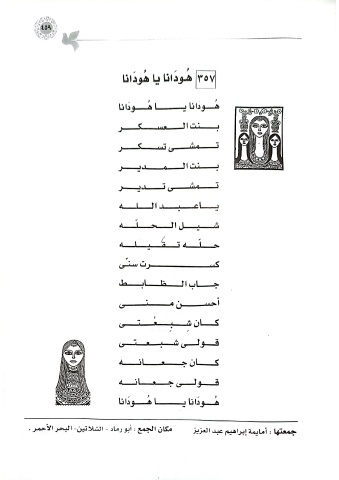 ٤٥٩
٣٥٧ هُودَانا يا هُودَانا
هُودانا يا هُودَانا
بنت العسكر
تمشى تسكر
بنت المدير
تمشى تدير
ياعبد الله
شيل الحلّه
حلّه تقيله
كسرت سنّى
جاب الظابط
أحسن منى
كان شبِعْتى
قولى شبعتى
كان جعانه
قولى جعانه
هُودَانا يا هُودَانا
جمعتها : أمايمة إبراهيم عبد العزيز مكان الجمع : أبو رماد - الشلاتين - البحر الأحمر .